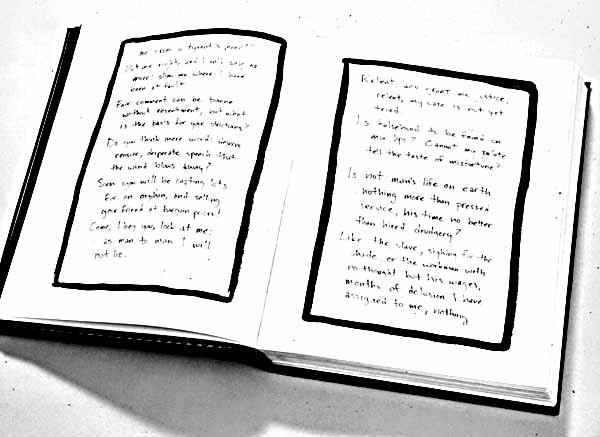 me from a tyrant's hand?"
Put me right, and I will say no
more: show me where I have
been at fault
Fair comment can be borne
without resentment, but what
is the basis for your strictures?
Do you think mere words deserve
censure, desperate speech that
the wind blows away?
Soon you will be casting lots
for an orphan, and selling
your friend at bargain prices!
Come, I beg you, look at me:
as man to man I will
not lie.
Relent, and grant me justice,
relent, my case is not yet
tried
Is falsehood to be found on
my lips? Cannot my palate
tell the taste of misfortune?
Is not man's life on earth
nothing more than pressed
service, his time no better
than hired drudgery?
Like the slave, sighing for the
shade, or the workman with
no thought but his wages,
months of delusion I have
assigned to me, nothing